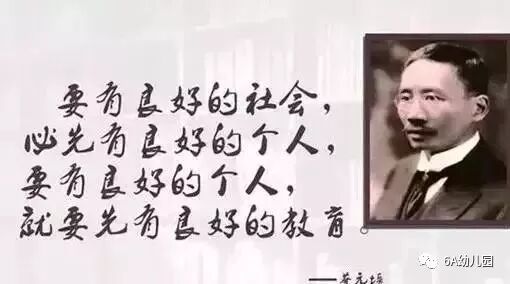 要有良好的社会，
必先有良好的个人，
要有良好的个人，
就要先有良好的教育
——蔡元培
6A幼儿园